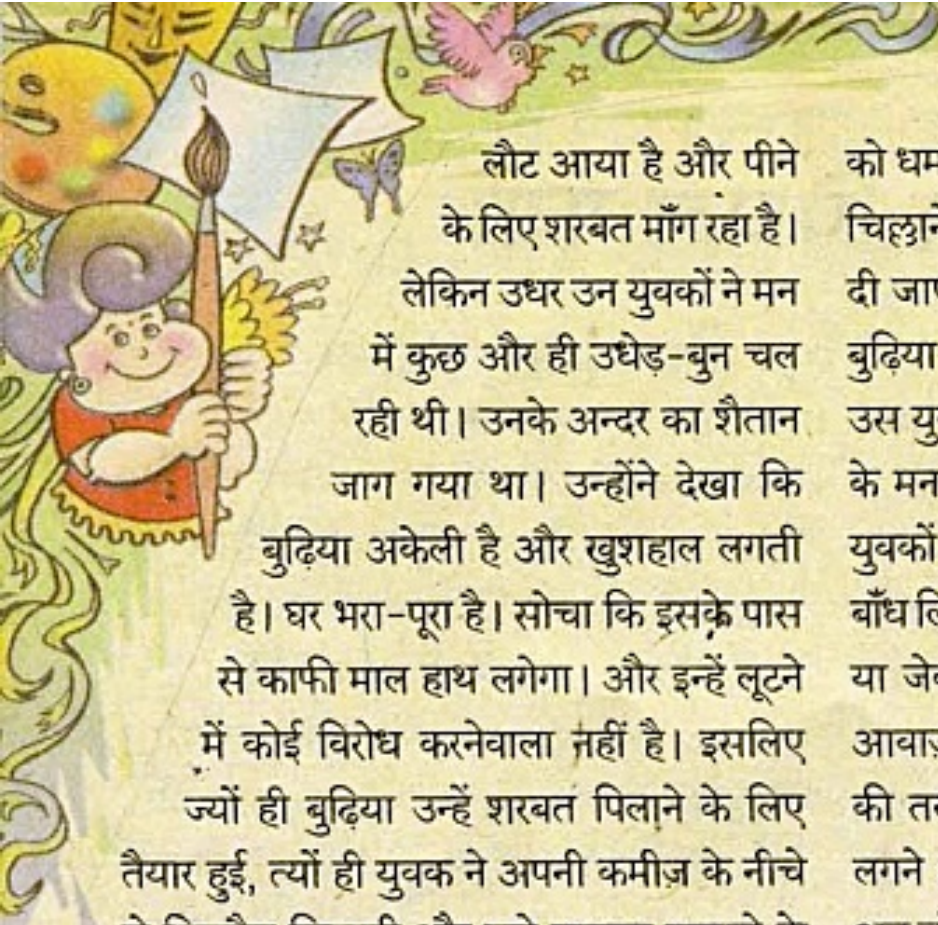 लौट आया है और पीने
के लिए शरबत माँग रहा है।
लेकिन उधर उन युवकों ने मन
में कुछ और ही उधेड़-बुन चल
रही थी। उनके अन्दर का शैतान
जाग गया था। उन्होंने देखा कि
बुढ़िया अकेली है और खुशहाल लगती
है। घर भरा-पूरा है। सोचा कि इसके पास
से काफी माल हाथ लगेगा। और इन्हें लूटने
में कोई विरोध करनेवाला नहीं है। इसलिए
ज्यों ही बुढ़िया उन्हें शरबत पिलाने के लिए
तैयार हुई, त्यों ही युवक ने अपनी कमीज़ के नीचे
को
दी
बुढ़िया
उस
के मन
युवकों
बाँध
या
की
लगने